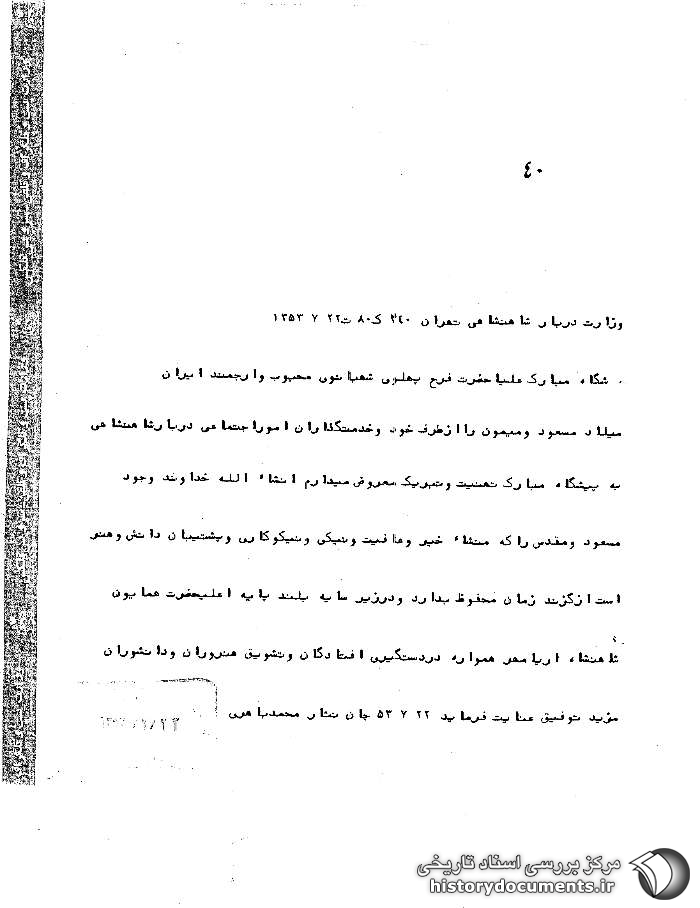 ٤٠
وزارت دربار شاهنشاهی تهران ٢٤٠ ک ٨٠ ت ٢٢ ٧ ١٣٥٣
پیشگاه مبارک علیاحضرت فرح پهلوی شهبانوی محبوب وارجمند ایران
میلاد مسعود ومیمون را ازطرف خود وخدمتگذاران امور اجتماعی دربار شاهنشاهی
به پیشگاه مبارک تهنیت وتبریک معروض میدارم انشاء الله خداوند وجود
مسعود ومقدس را که منشاء خیر وعافیت ونیکی ونیکوکاری وپشتیبان دانش وهنر
است ازگزند زمان محفوظ بدارد ودرزیر سایه بلند پایه اعلیحضرت همایون
شاهنشاه اریامهر همواره دردستگیری افتادگان وتشویق هنروران ودانشوران
مزید توفیق عنایت فرماید ٢٢ ٧ ٥٣ جان نثار محمدباهری
مرکز بررسی اسناد تاریخی
historydocuments.ir